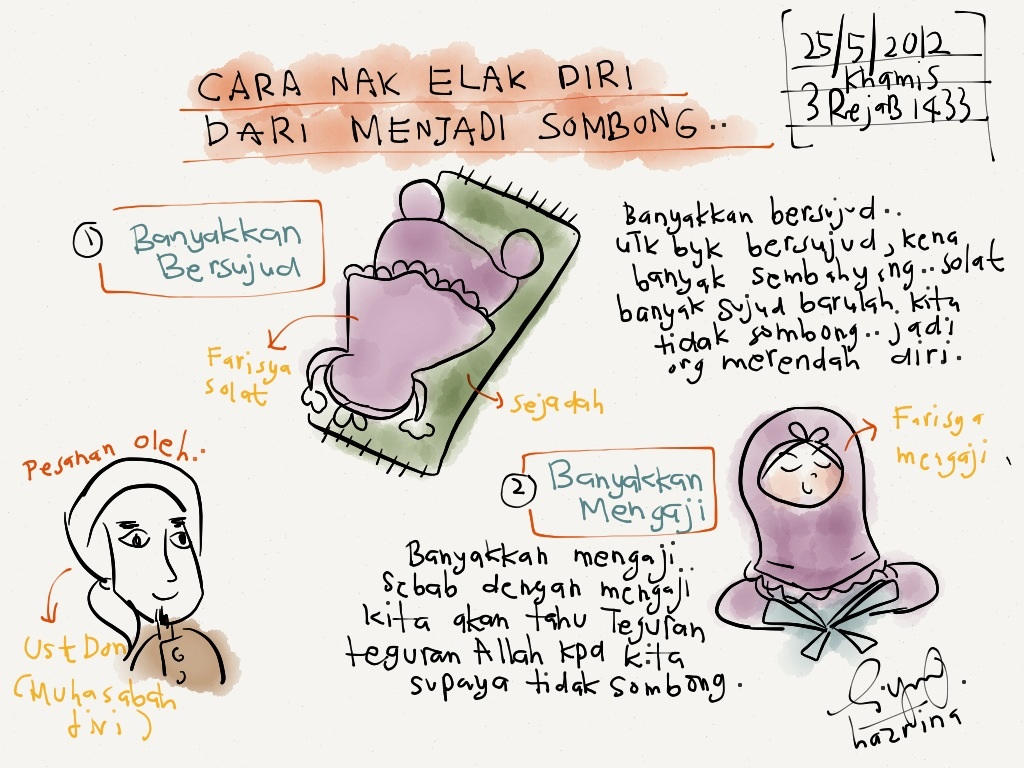 25/5/2012
Khamis
3 Rejab 1433
CARA NAK ELAK DIRI
DARI MENJADI SOMBONG..
1
Banyakkan
Bersujud
Farisya
solat
sejadah
Banyakkan bersujud..
utk byk bersujud, kena
banyak sembahyang.. solat
banyak sujud barulah kita
tidak sombong.. jadi
org merendah diri.
Pesanan oleh..
Ust Don
(Muhasabah
diri)
2
Banyakkan
Mengaji
Farisya
mengaji
Banyakkan mengaji..
Sebab dengan mengaji
kita akan tahu Teguran
teguran Allah kpd kita
supaya tidak sombong.
hazrina